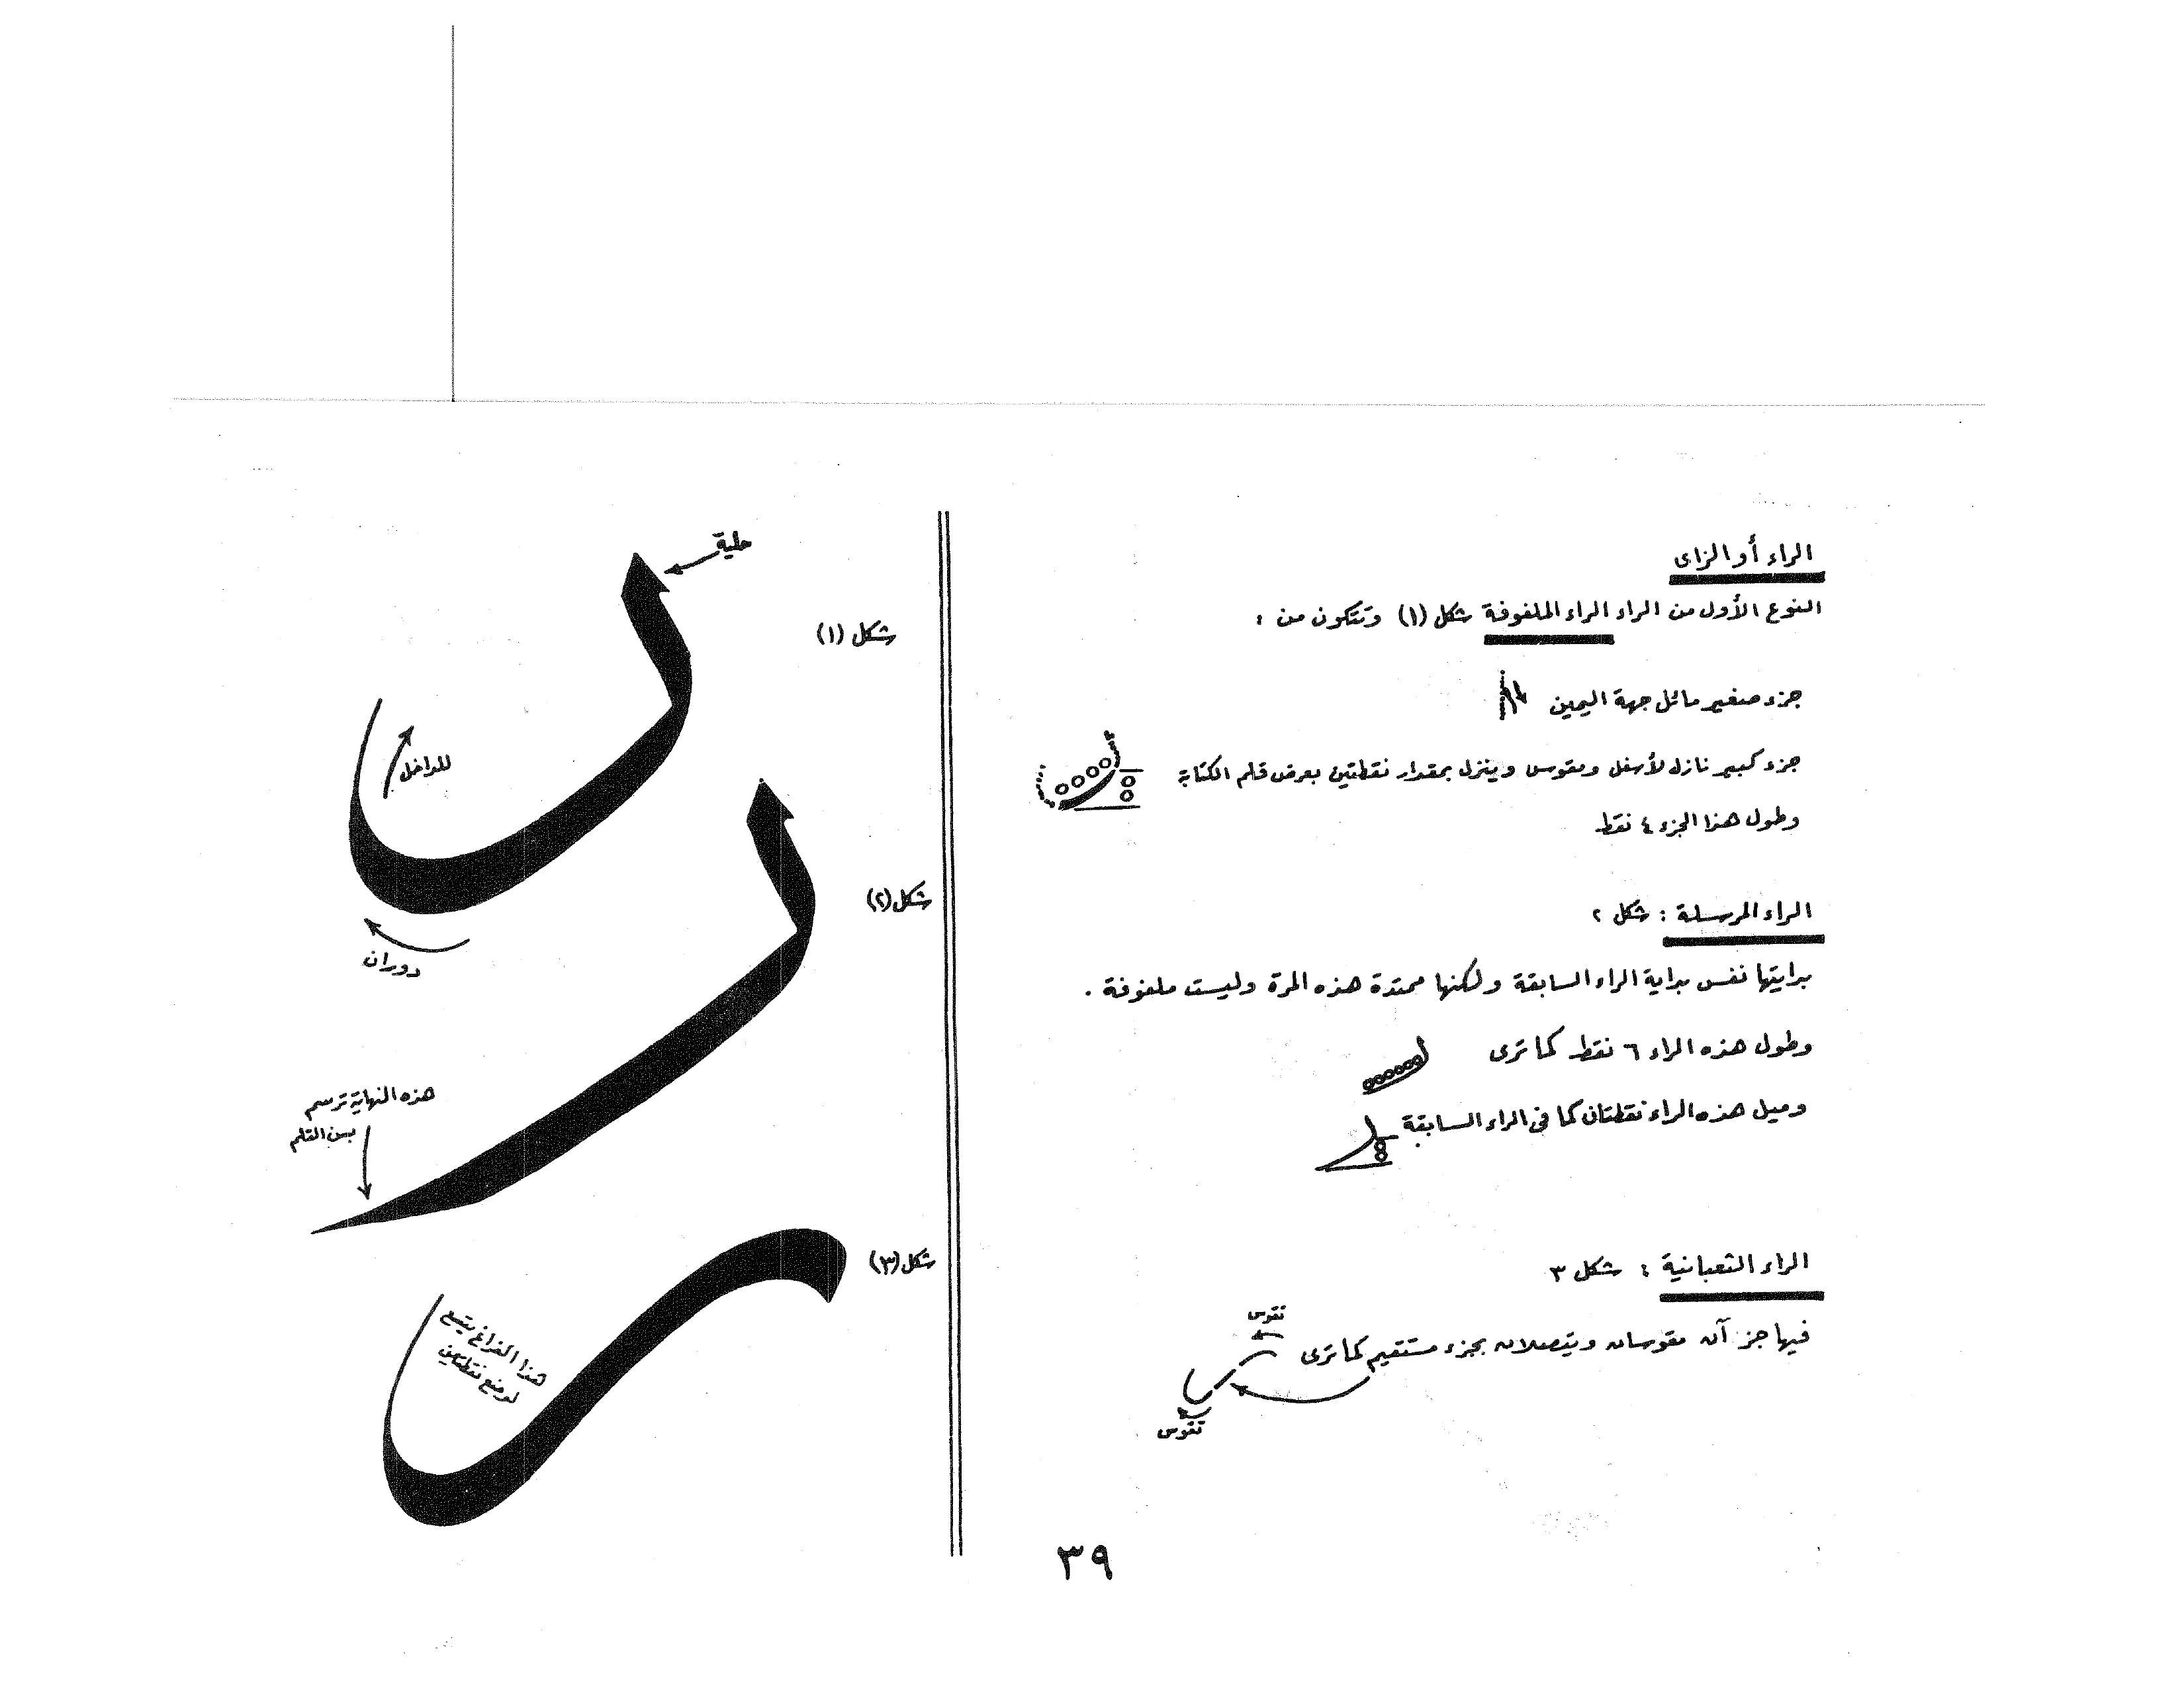 الراء أو الزاى
النوع الأول من الراء الراء الملفوفة شكل (١) وتتكون من :
جزء صغير مائل جهة اليمين
جزء كبير نازل لأسفل ومقوس وينزل بمقدار نقطتين بعرض قلم الكتابة
وطول هذا الجزء ٤ نقط
الراء المرسلة : شكل ٢
بدايتها نفس بداية الراء السابقة ولكنها ممتدة هذه المرة وليست ملفوفة .
وطول هذه الراء ٦ نقط كما ترى
وميل هذه الراء نقطتان كما فى الراء السابقة
الراء الثعبانية : شكل ٣
فيها جزآن مقوسان ويتصلان بجزء مستقيم كما ترى
تقوس
تقوس
حلية
شكل (١)
للداخل
دوران
شكل (٢)
هذه النهاية ترسم
بسن القلم
شكل (٣)
هذا الفراغ يتسع
لوضع نقطتين
ر
ر
ر
٣٩